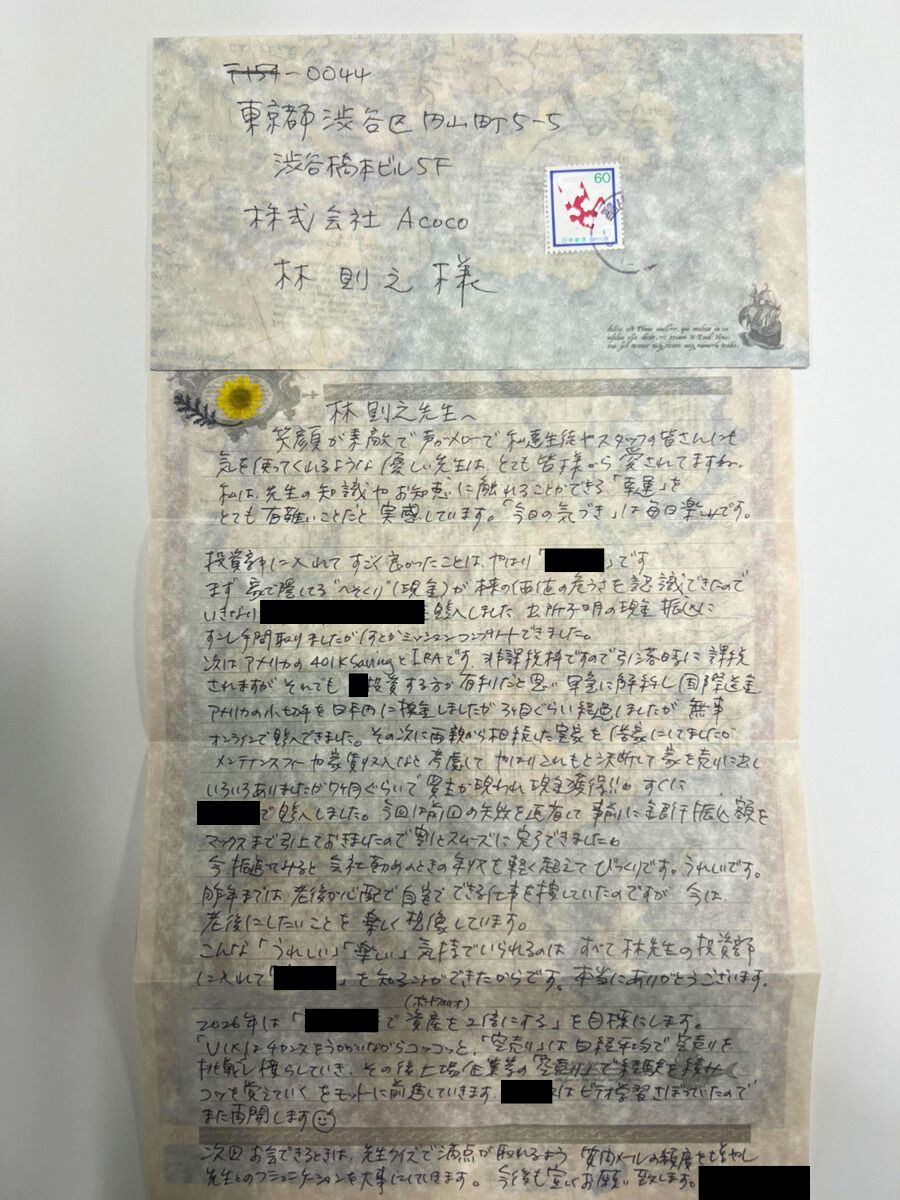 〒154-0044
東京都渋谷区円山町5-5
渋谷橋本ビル5F
株式会社 Acoco
林 則之 様
60
日本郵便
林 則之先生へ
笑顔が素敵で声がメローで私達生徒やスタッフの皆さんにも
気を使ってくれるような優しい先生は、とても皆様から愛されてますね。
私は、先生の知識やお知恵に触れることができる「幸運」を
とても有難いことだと実感しています。「今日の気づき」は毎日楽しみです。
投資部に入れてすごく良かったことは やはり「 」です
まず 家で隠してる"へそくり"(現金)が 株の価値の危うさを認識できたので
いきなり を購入しました 出所不明の現金 振込に
すこし手間取りましたがなんとかミッションコンプリートできました。
次はアメリカの401K SavingとIRAです。非課税枠ですので引落時に課税
されますが それでも 投資する方が有利だと思い 早急に解約し国際送金
アメリカの小切手を日本円に換金しましたが3ヶ月ぐらい経過しましたが 無事
オンラインで購入できました。その次に両親から相続した実家を借家にしてましたが
メンテナンスフィーや家賃収入など考慮して やはりこれもと決断して 家を売りに出し
いろいろありましたが7ヶ月ぐらいで買主が現われ現金獲得!! すぐに
で購入しました。今回は前回の失敗を 事前に銀行振込額を
マックスまで引上ておきましたので割とスムーズに完了できました。
今振返ってみると 会社勤めのときの年収を軽く超えて びっくりです。うれしいです。
昨年までは、老後が心配で自宅でできる仕事を捜していたのですが 今は、
老後にしたいことを 楽しく想像しています。
こんな「うれしい」「楽しい」気持でいられるのは すべて林先生の投資部
に入れて「 」を知ることができたからです。本当にありがとうございます。
(ポートフォリオ)
2026年は「 で資産を2倍にする」を目標にします。
「VIX」はチャンスをうかがいながらコツコツと、「空売り」は日経平均で空売りを
挑戦し慣らしていき、その後上場企業等の空売り上で経験を積み
コツを覚えていく をモットに前進していきます。 はビデオ学習さぼっていたので
また再開します
次回お会できるときは、先生クイズで満点が取れるよう 質問メールの頻度を増やし
先生とのコミュニケーションを大事にしていきます。今後も宜しくお願い致します。